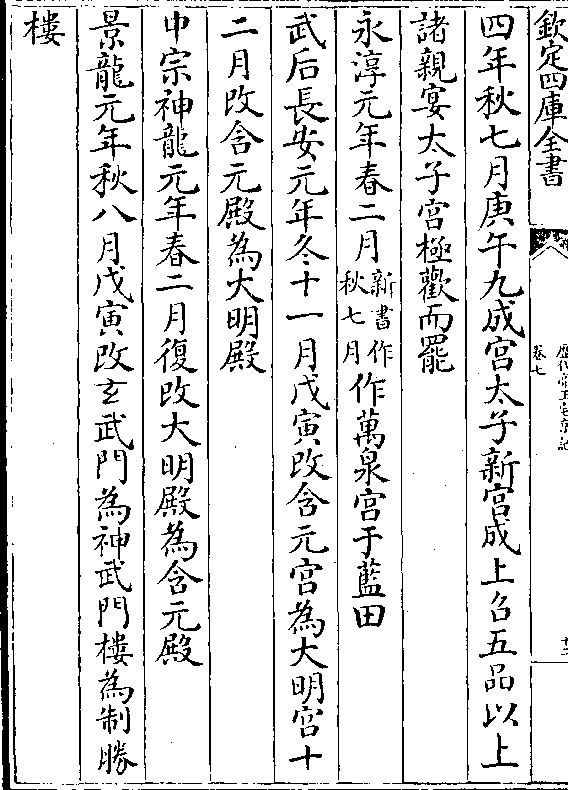 欽定四庫全書
卷七
四年秋七月庚午九成宮太子新宮成上召五品以上
諸親宴太子宮極歡而罷
永淳元年春二月新書作秋七月作萬泉宮于藍田
武后長安元年冬十一月戊寅改含元宮為大明宮十
二月改含元殿為大明殿
中宗神龍元年春二月復改大明殿為含元殿
景龍元年秋八月戊寅改玄武門為神武門樓為制勝
樓